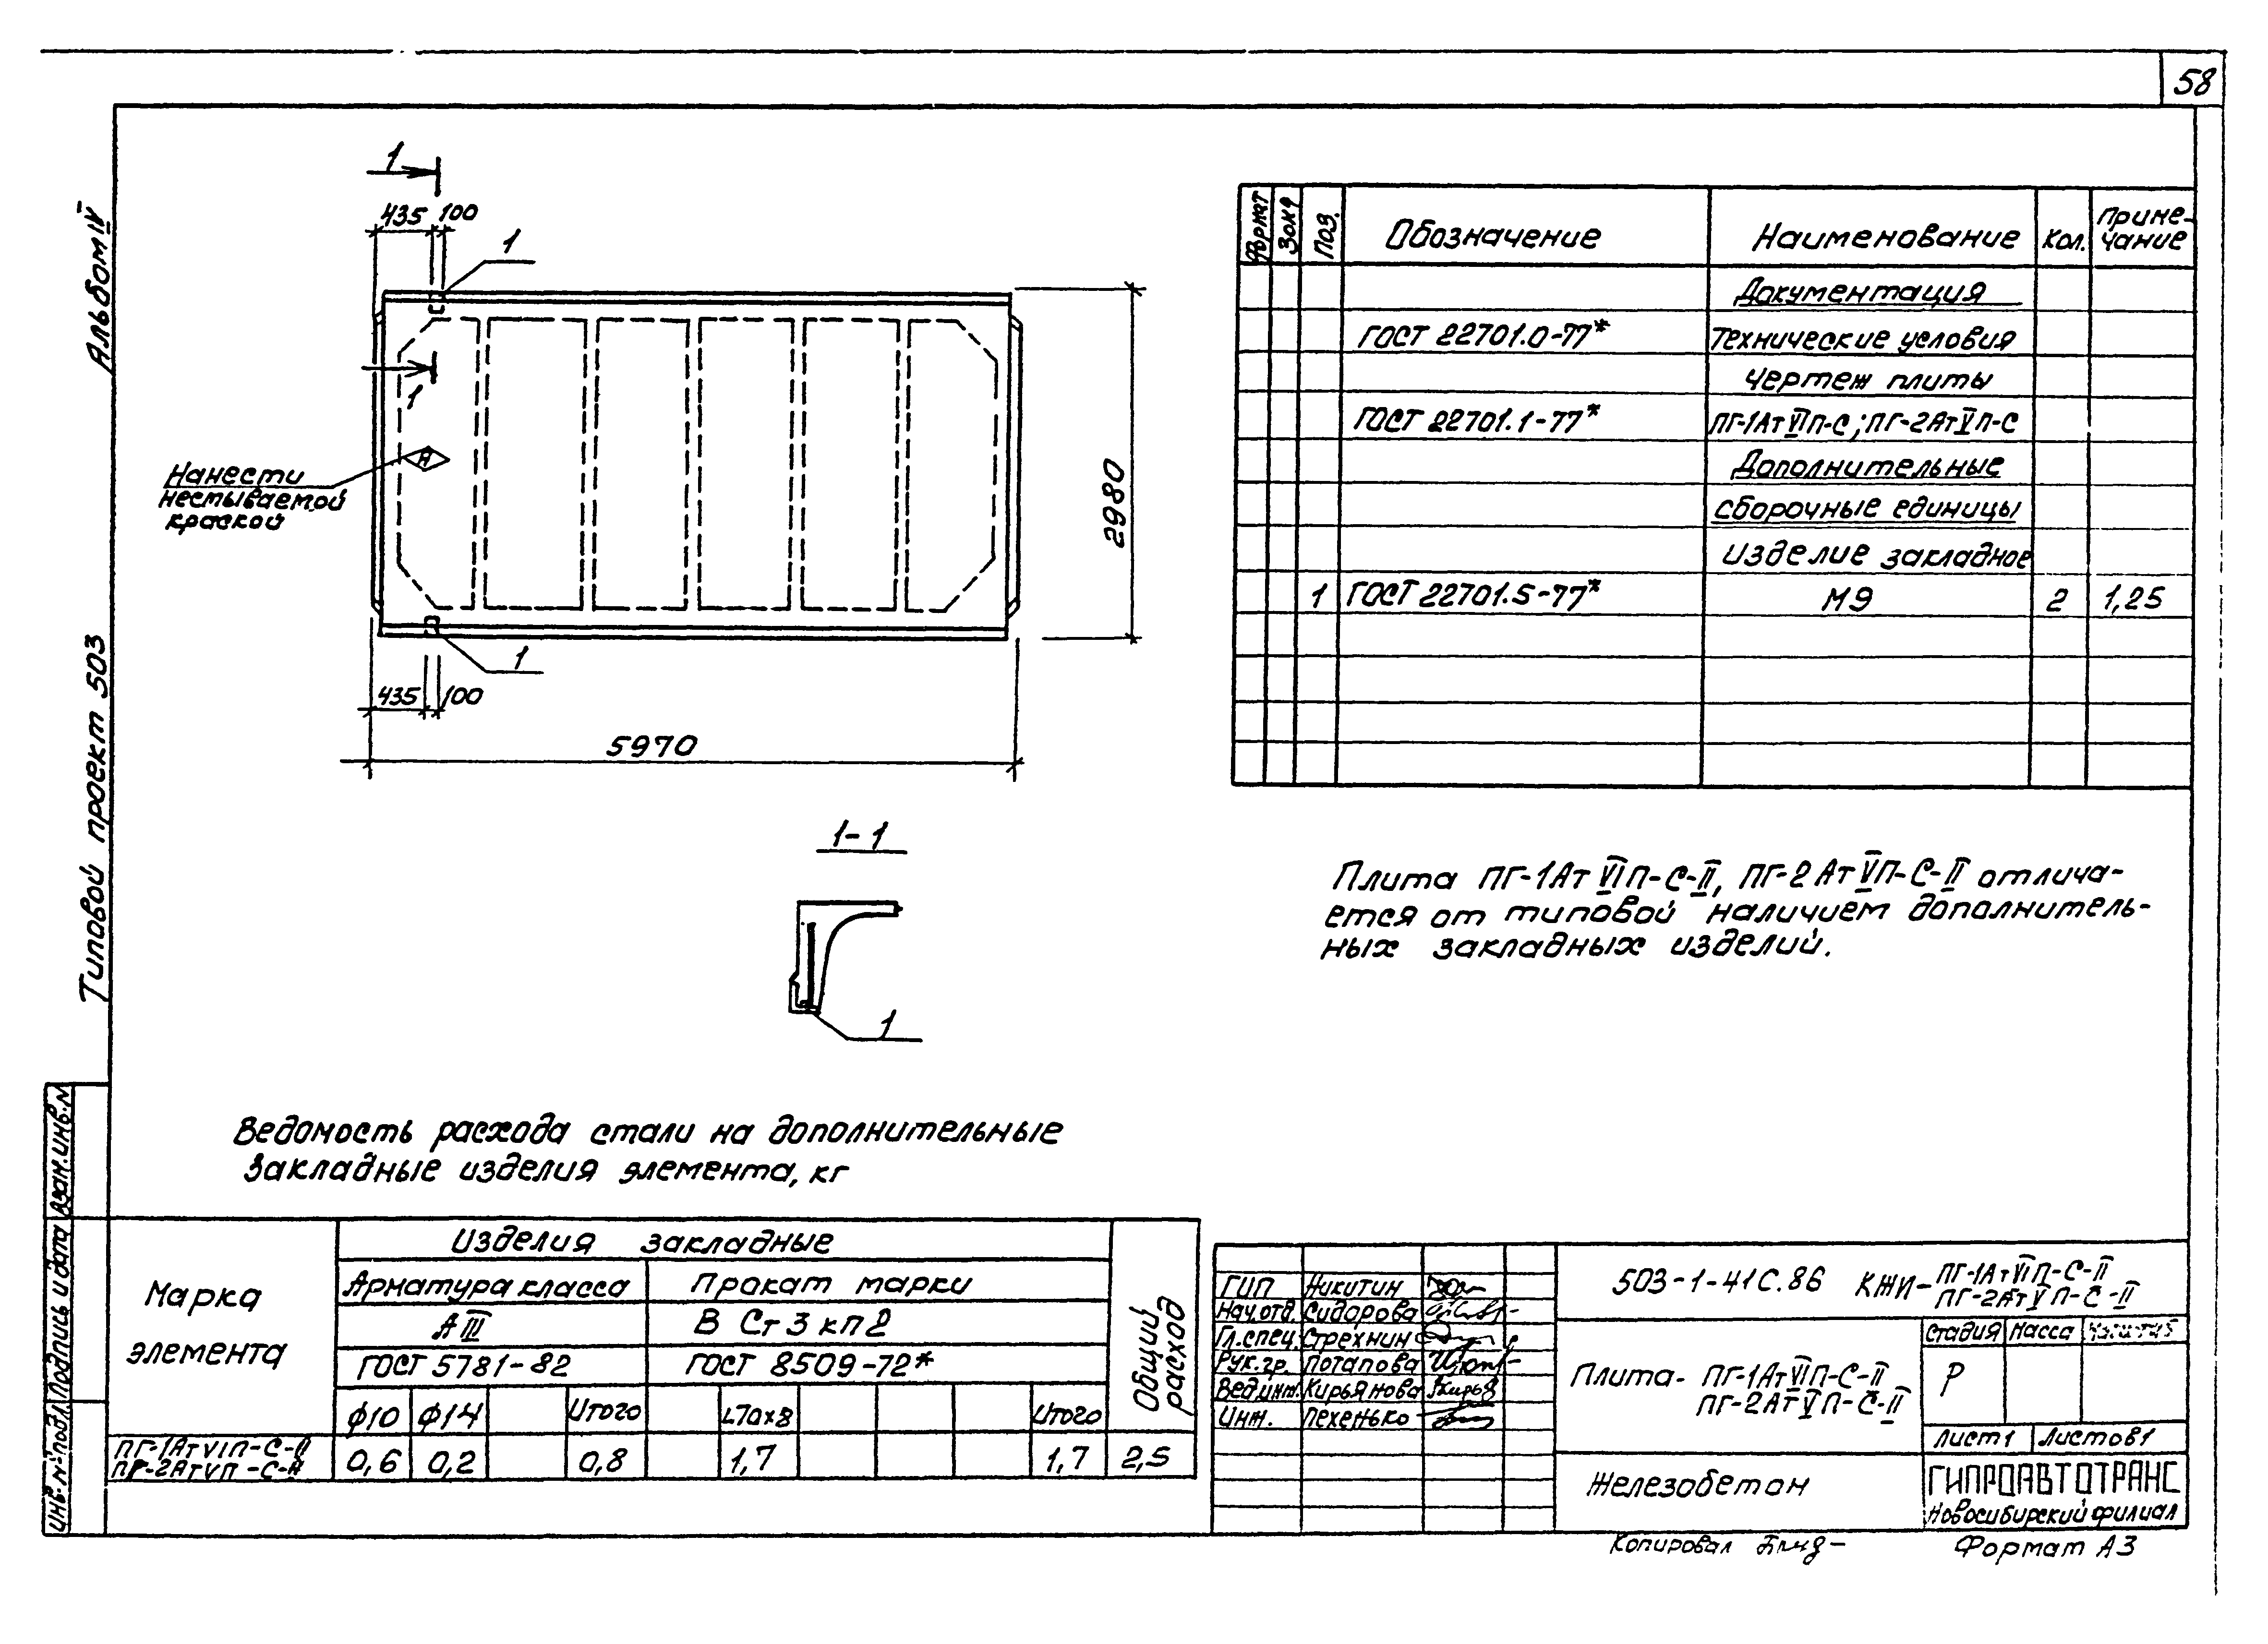 58
Альбом IV
Типовой проект 503
1
435 100
1
1
Нанести
несмываемой
краской
А
2980
1
435 100
5970
1-1
1
Формат Зона Поз. Обозначение Наименование Кол. Приме-
чание
Документация
ГОСТ 22701.0-77* Технические условия
Чертеж плиты
ГОСТ 22701.1-77* ПГ-1АтVIП-С; ПГ-2АтVП-С
Дополнительные
сборочные единицы
Изделие закладное
1 ГОСТ 22701.5-77* М9 2 1,25
Плита ПГ-1АтVIП-С-II, ПГ-2АтVП-С-II отлича-
ется от типовой наличием дополнитель-
ных закладных изделий.
Ведомость расхода стали на дополнительные
закладные изделия элемента, кг
Марка
элемента
Изделия закладные
Общий
расход
Арматура класса Прокат марки
АIII В Ст3кп2
ГОСТ 5781-82 ГОСТ 8509-72*
ф10 ф14 Итого L70х8 Итого
ПГ-1АтVIП-С-II
ПГ-2АтVП-С-II
0,6 0,2 0,8 1,7 1,7 2,5
Инв.№подл. Подпись и дата Взам.инв.№
ГИП Никитин
Нач.отд. Сидорова
Гл.спец. Стрехнин
Рук.гр. Потапова
Вед.инж. Кирьянова
Инж. Пехенько
503-1-41С.86 КЖИ-ПГ-1АтVIП-С-II
ПГ-2АтVП-С-II
Плита- ПГ-1АтVIП-С-II
ПГ-2АтVП-С-II
Стадия Масса Масштаб
Р
Лист 1 Листов 1
Железобетон
ГИПРОАВТОТРАНС
Новосибирский филиал
Копировал
Формат А3